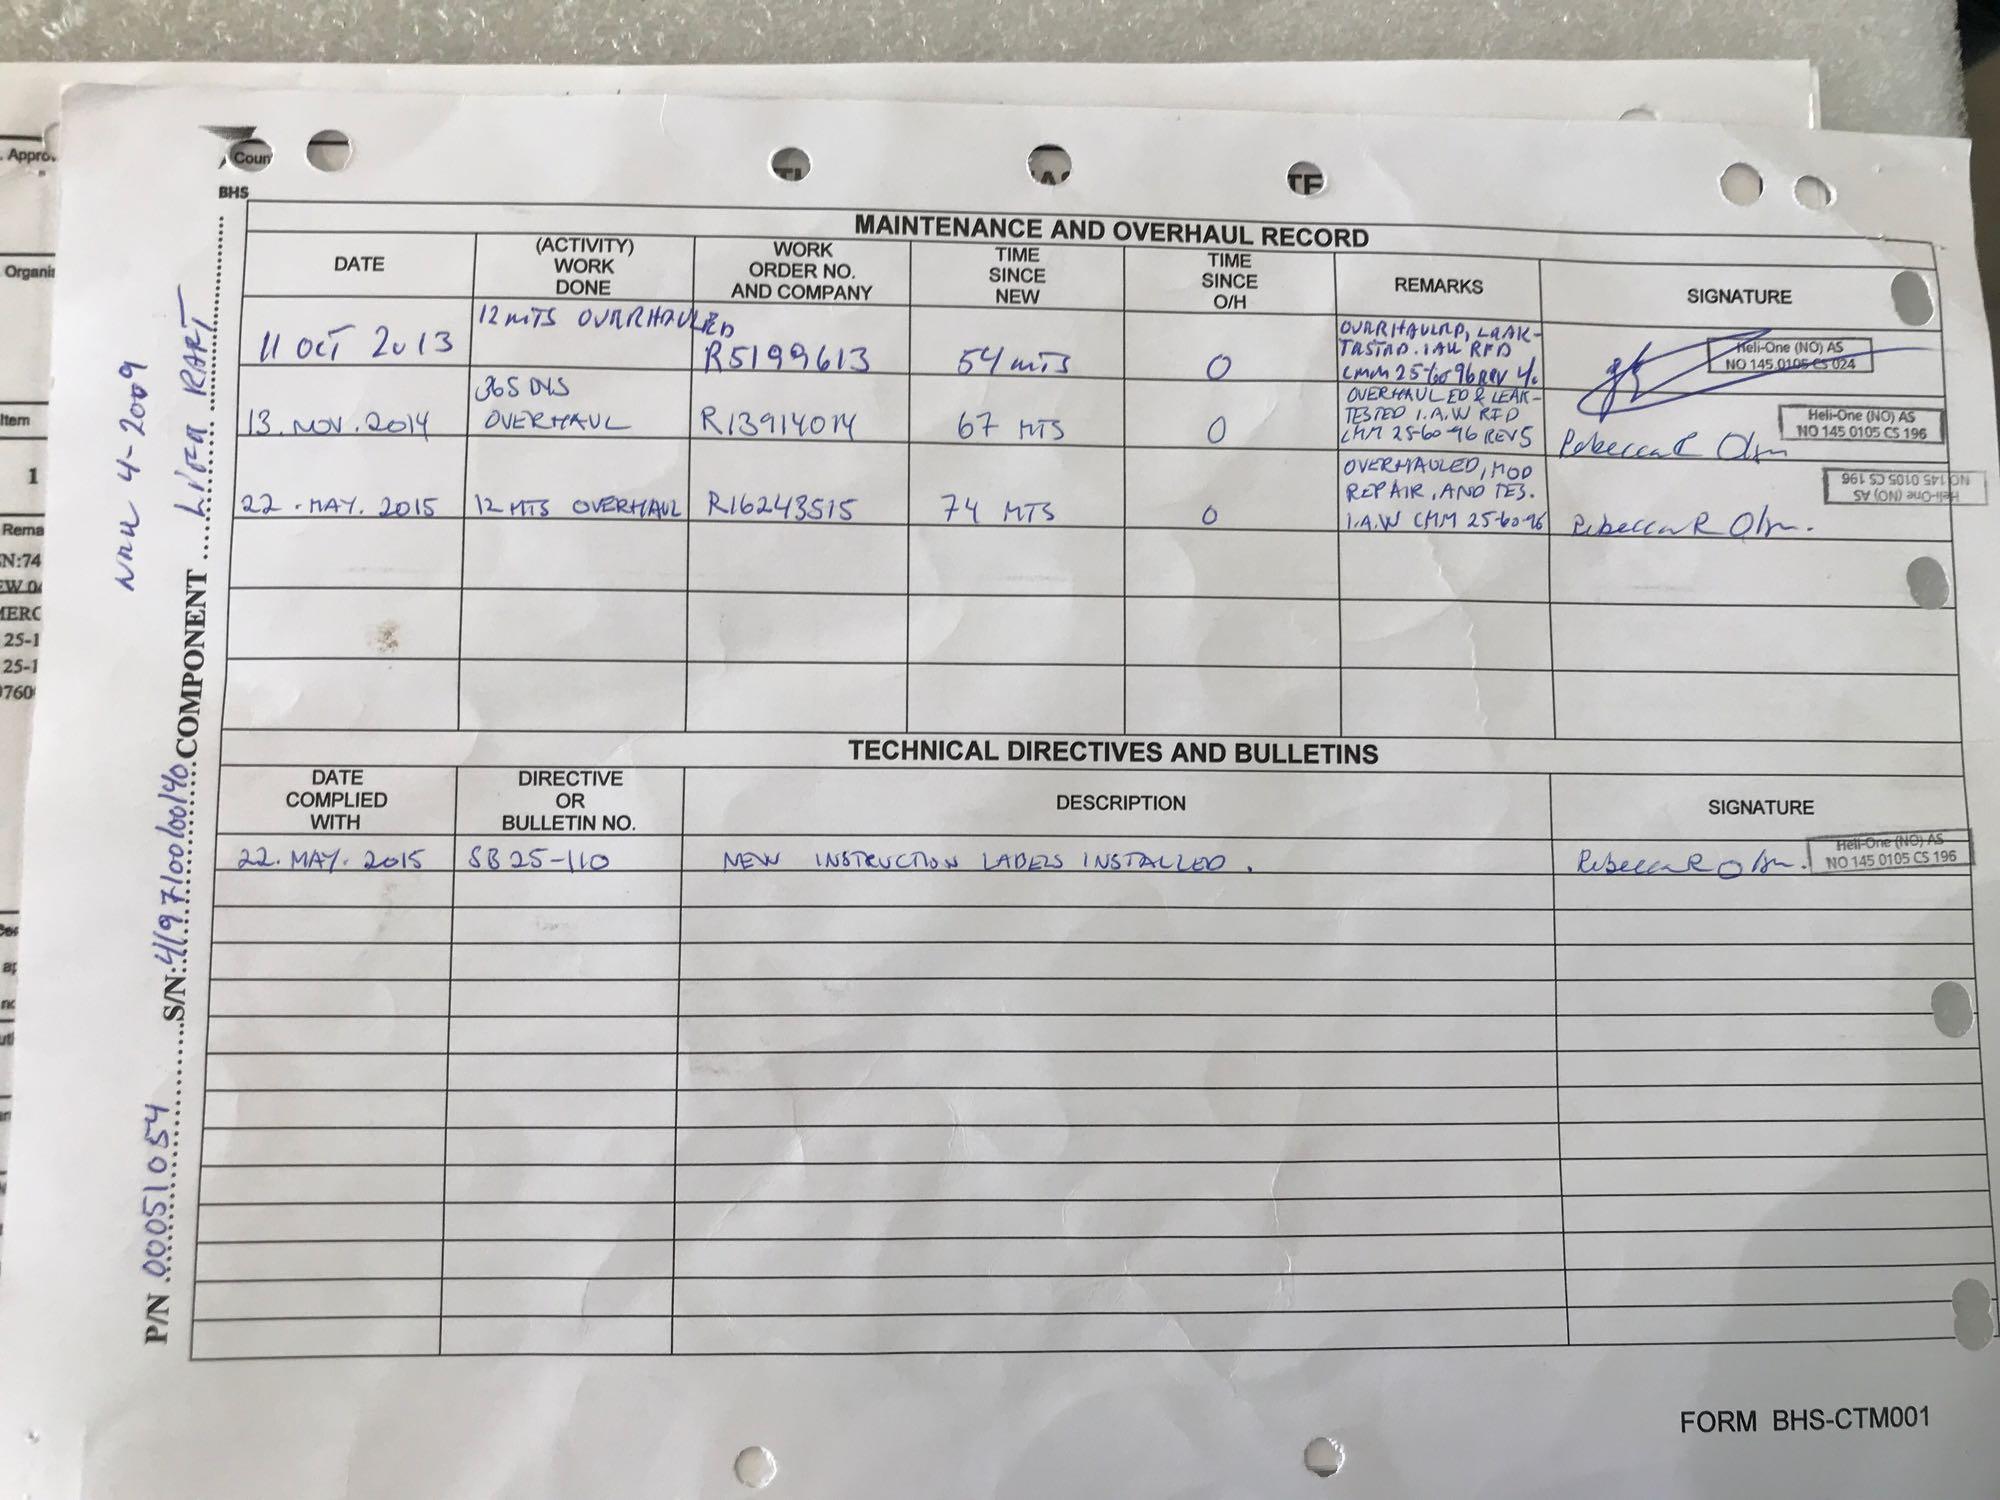 . Appro.
Organis
Item
1
Rema
N:74
MERC
25-1
25-1
Coun
TE
BHS
NEW 4-2009
P/N 00051054 S/N: 4197100100140 COMPONENT LIFE RAFT
MAINTENANCE AND OVERHAUL RECORD
DATE
(ACTIVITY)
WORK
DONE
WORK
ORDER NO.
AND COMPANY
TIME
SINCE
NEW
TIME
SINCE
O/H
REMARKS
SIGNATURE
11 OCT 2013
12 MTS OVERHAULED
R5199613
54 MTS
0
OVERHAULED, LEAK-
TESTED. IAW RFD
CMM 25-60-96 REV 4.
Heli-One (NO) AS
NO 145 0105 CS 024
13. NOV. 2014
365 DYS
OVERHAUL
R13914014
67 MTS
0
OVERHAULED & LEAK-
TESTED I.A.W RFD
CMM 25-60-96 REV5
Rebecca R Olsn
Heli-One (NO) AS
NO 145 0105 CS 196
22. MAY. 2015
12 MTS OVERHAUL
R16243515
74 MTS
0
OVERHAULED, MOD
REPAIR, AND TES.
I.A.W CMM 25-60-96
Rebecca R Olsn.
Heli-One (NO) AS
NO 145 0105 CS 196
TECHNICAL DIRECTIVES AND BULLETINS
DATE
COMPLIED
WITH
DIRECTIVE
OR
BULLETIN NO.
DESCRIPTION
SIGNATURE
22. MAY. 2015
SB 25-110
NEW INSTRUCTION LABELS INSTALLED.
Rebecca R Olsn.
Heli-One (NO) AS
NO 145 0105 CS 196
FORM BHS-CTM001